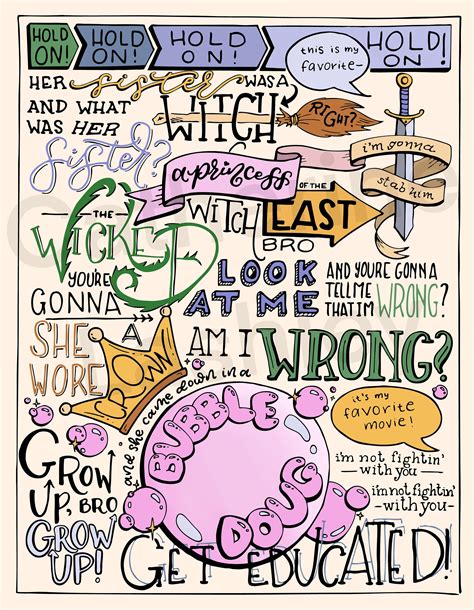 HOLD ON! HOLD ON! HOLD ON! HOLD ON!
this is my favorite-
HER sister WAS A
WITCH
RIGHT?
AND WHAT
WAS HER
sister?
i'm gonna
stab him
a princess
THE
WICKED
WITCH
OF THE
EAST
BRO
YOU'RE
GONNA
LOOK
AT ME
AND YOU'RE GONNA
TELL ME
THAT I'M WRONG?
AM I
WRONG?
SHE
WORE
A
CROWN
and she came down in a
BUBBLE
DOUG
it's my
favorite
movie!
GROW
UP, BRO
GROW
UP!
i'm not fightin'
—with you—
i'm not fightin'
-with you-
GET EDUCATED!